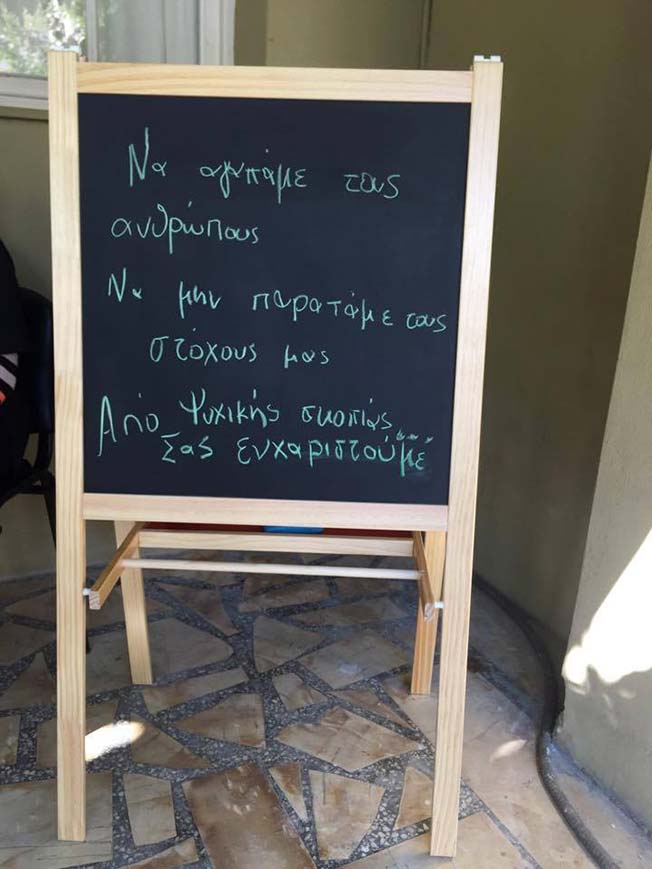 Να αγαπάμε τους
ανθρώπους
Να μην παρατάμε τους
στόχους μας
Από Ψυχικής σκοπιάς...
Σας ευχαριστούμε